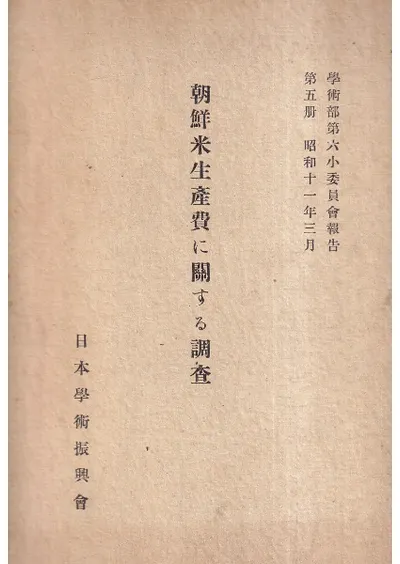 學術部第六小委員會報告
第五册　昭和十一年三月
朝鮮米生産費に關する調査
日本學術振興會